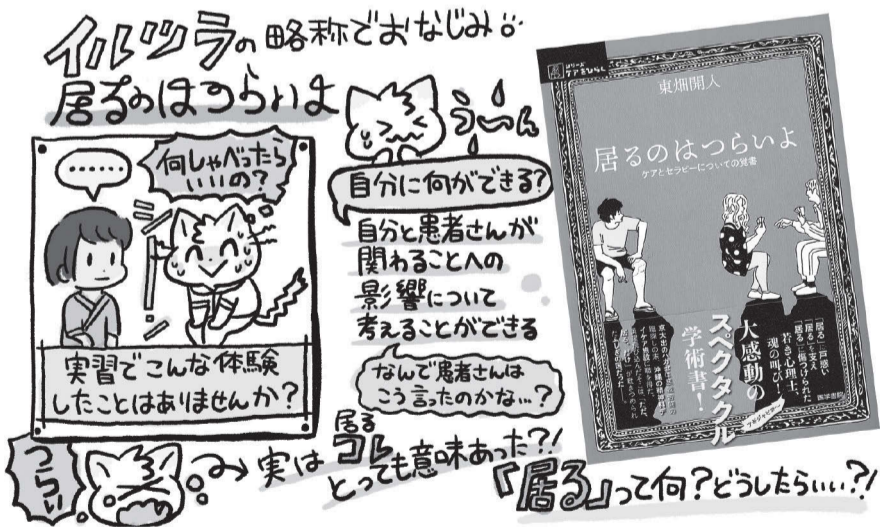 イルツラの略称でおなじみ
居るのはつらいよ
……
何しゃべったら
いいの？
シーーーン
実習でこんな体験
したことはありませんか？
うーん
自分に何ができる？
自分と患者さんが
関わることへの
影響について
考えることができる
なんで患者さんは
こう言ったのかな…？
つらい
実は
居る
コレ
とっても意味あった?!
シリーズ
ケアをひらく
東畑開人
居るのはつらいよ
ケアとセラピーについての覚書
「居る」に戸惑い
「居る」に支え
「居る」に傷つけられた
若き心理士、
魂の叫び！
大感動の
スペクタクル
学術書！
医学書院
『居る』って何？どうしたらいい？！